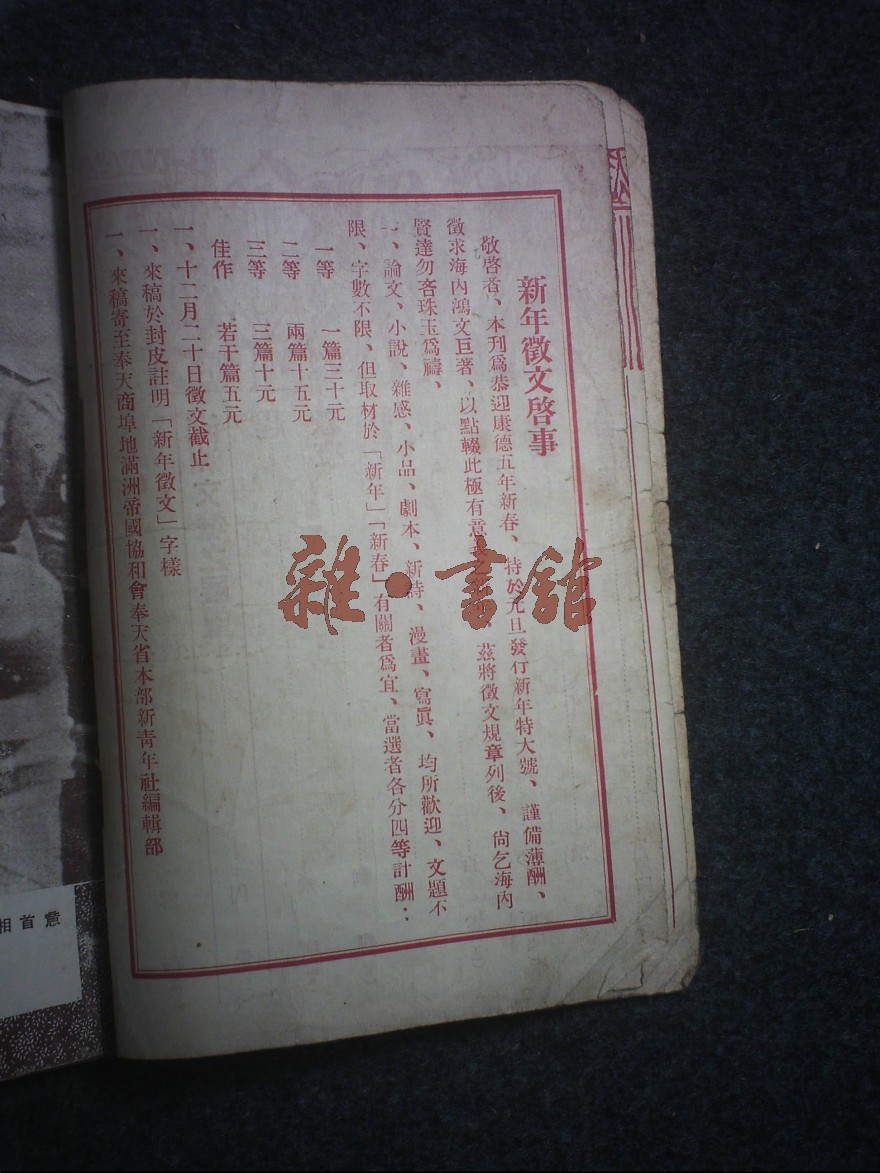 新年徵文啓事
敬啓者、本刊爲恭迎康德五年新春、特於元旦發行新年特大號、謹備薄酬、
徵求海內鴻文巨著、以點輟此極有意義 茲將徵文規章列後、尙乞海內
賢達勿吝珠玉爲禱、
一、論文、小說、雜感、小品、劇本、新詩、漫畫、寫眞、均所歡迎、文題不
限、字數不限、但取材於「新年」「新春」有關者爲宜、當選者各分四等計酬：
一等 一篇三十元
二等 兩篇十五元
三等 三篇十元
佳作 若干篇五元
一、十二月二十日徵文截止
一、來稿於封皮註明「新年徵文」字樣
一、來稿寄至奉天商埠地滿洲帝國協和會奉天省本部新靑年社編輯部
雜·書館
相首